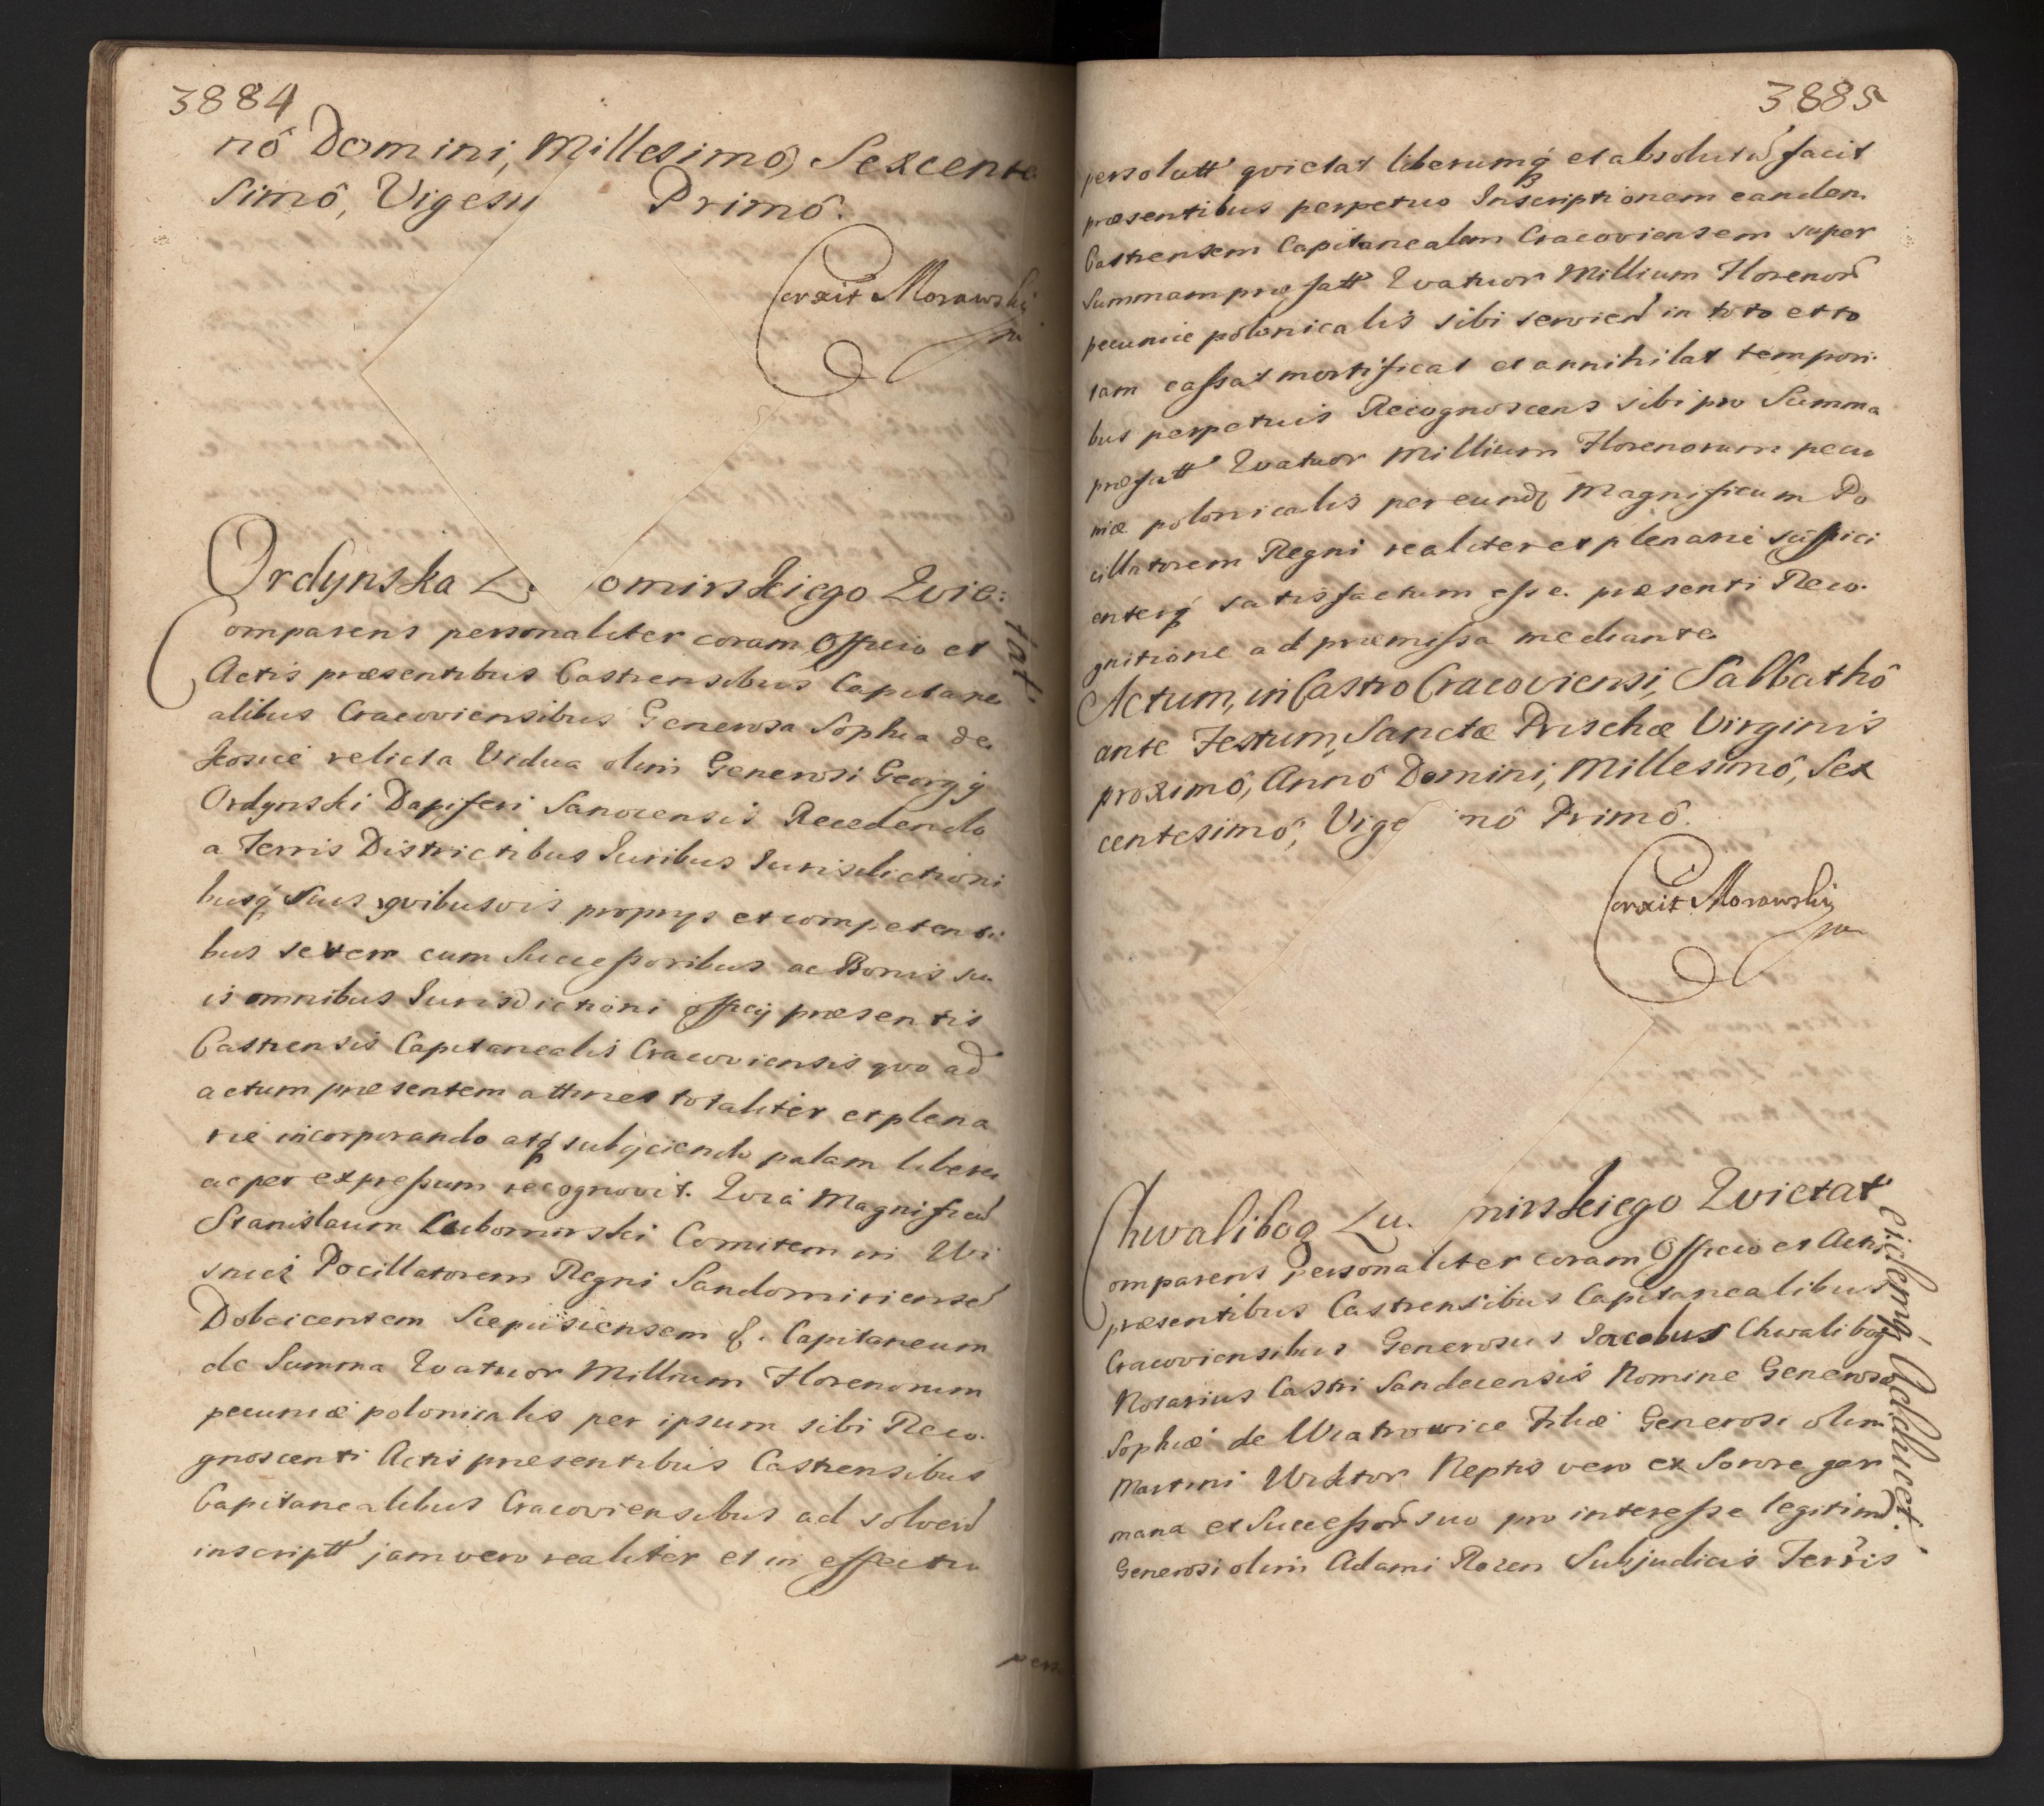 3884
nô Domini, Millesimô, Sexcente
simô, Vigesi Primô.
Corxit Morawski
Ordynska Lu omirskiego Qvie:
tat.
Comparens personaliter coram Officio et
Actis præsentibus Castrensibus Capitane
alibus Cracoviensibus Generosa Sophia de
relicta Vidua olim Generosi Georgÿ
Ordynski Dapiferi Sanocensis Recedendo
a Terris Districtibus Iuribus Iurisdictioni
busq́ suis qvibusvis proprys et competenti
bus seter cum Successoribus ac Bonis su
is omnibus Iurisdictioni officÿ præsentis
Castrensis Capitanealis Cracoviensis qvo ad
actum præsentem attinet totaliter et plena
rie incorporando atq́ subÿciendo palam libere
ac per expressum recognovit. Qvia Magnificū
Stanislaum Lubomirski Comitem in Wi
snicz Pocillatorem Regni Sandomiriensē
Dobcicensem Scepusiensem &. Capitaneum
de Summa Qvatuor Millium Florenorum
pecuniæ polonicalis per ipsum sibi Reco.
gnoscenti Actis præsentibus Castrensibus
Capitanealibus Cracoviensibus ad solvend
inscriptt jam vero realiter et in effectu
pers
3885
persolutt qvietat liberumq́ et absolutū facit
præsentibus perpetuo Inscriptionem eandem
Castrensem Capitanealem Cracoviensem super
Summam præfatt Qvatuor Millium Florenor
pecuniæ polonicalis sibi serviend in toto et to
tam cassat mortificat et annihilat tempori
bus perpetuis Recognoscens sibi pro Summa
præfatt Qvatuor Millium Florenorum pecu
niæ polonicalis per eund Magnificum Po
cillatorem Regni realiter et plenarie suffici
enterq́ satisfactum esse. præsenti Reco.
gnitione ad præmissa mediante
Actum, in Castro Cracoviensi, Sabbathô
ante Festum, Sanctæ Prischæ Virginis
proximô, Annô Domini, Millesimô, Sex
centesimô, Vige nô Primô.
Corxit Morawski
Chwalibog Lu. mirskiego Qvietat
Eidemq́ Adducet.
Comparens Personaliter coram Officio et Actis
præsentibus Castrensibus Capitanealibus
Cracoviensibus Generosus Jacobus Chwalibog
Notarius Castri Sandecensis Nomine Generosæ
Sophiæ de Wiatrowice Filiæ Generosi olim
Martini Wiktor Neptis vero ex Sorore ger
mana et Successor suo pro interesse legitim
Generosi olim Adami Rozen Subjudicis Terris